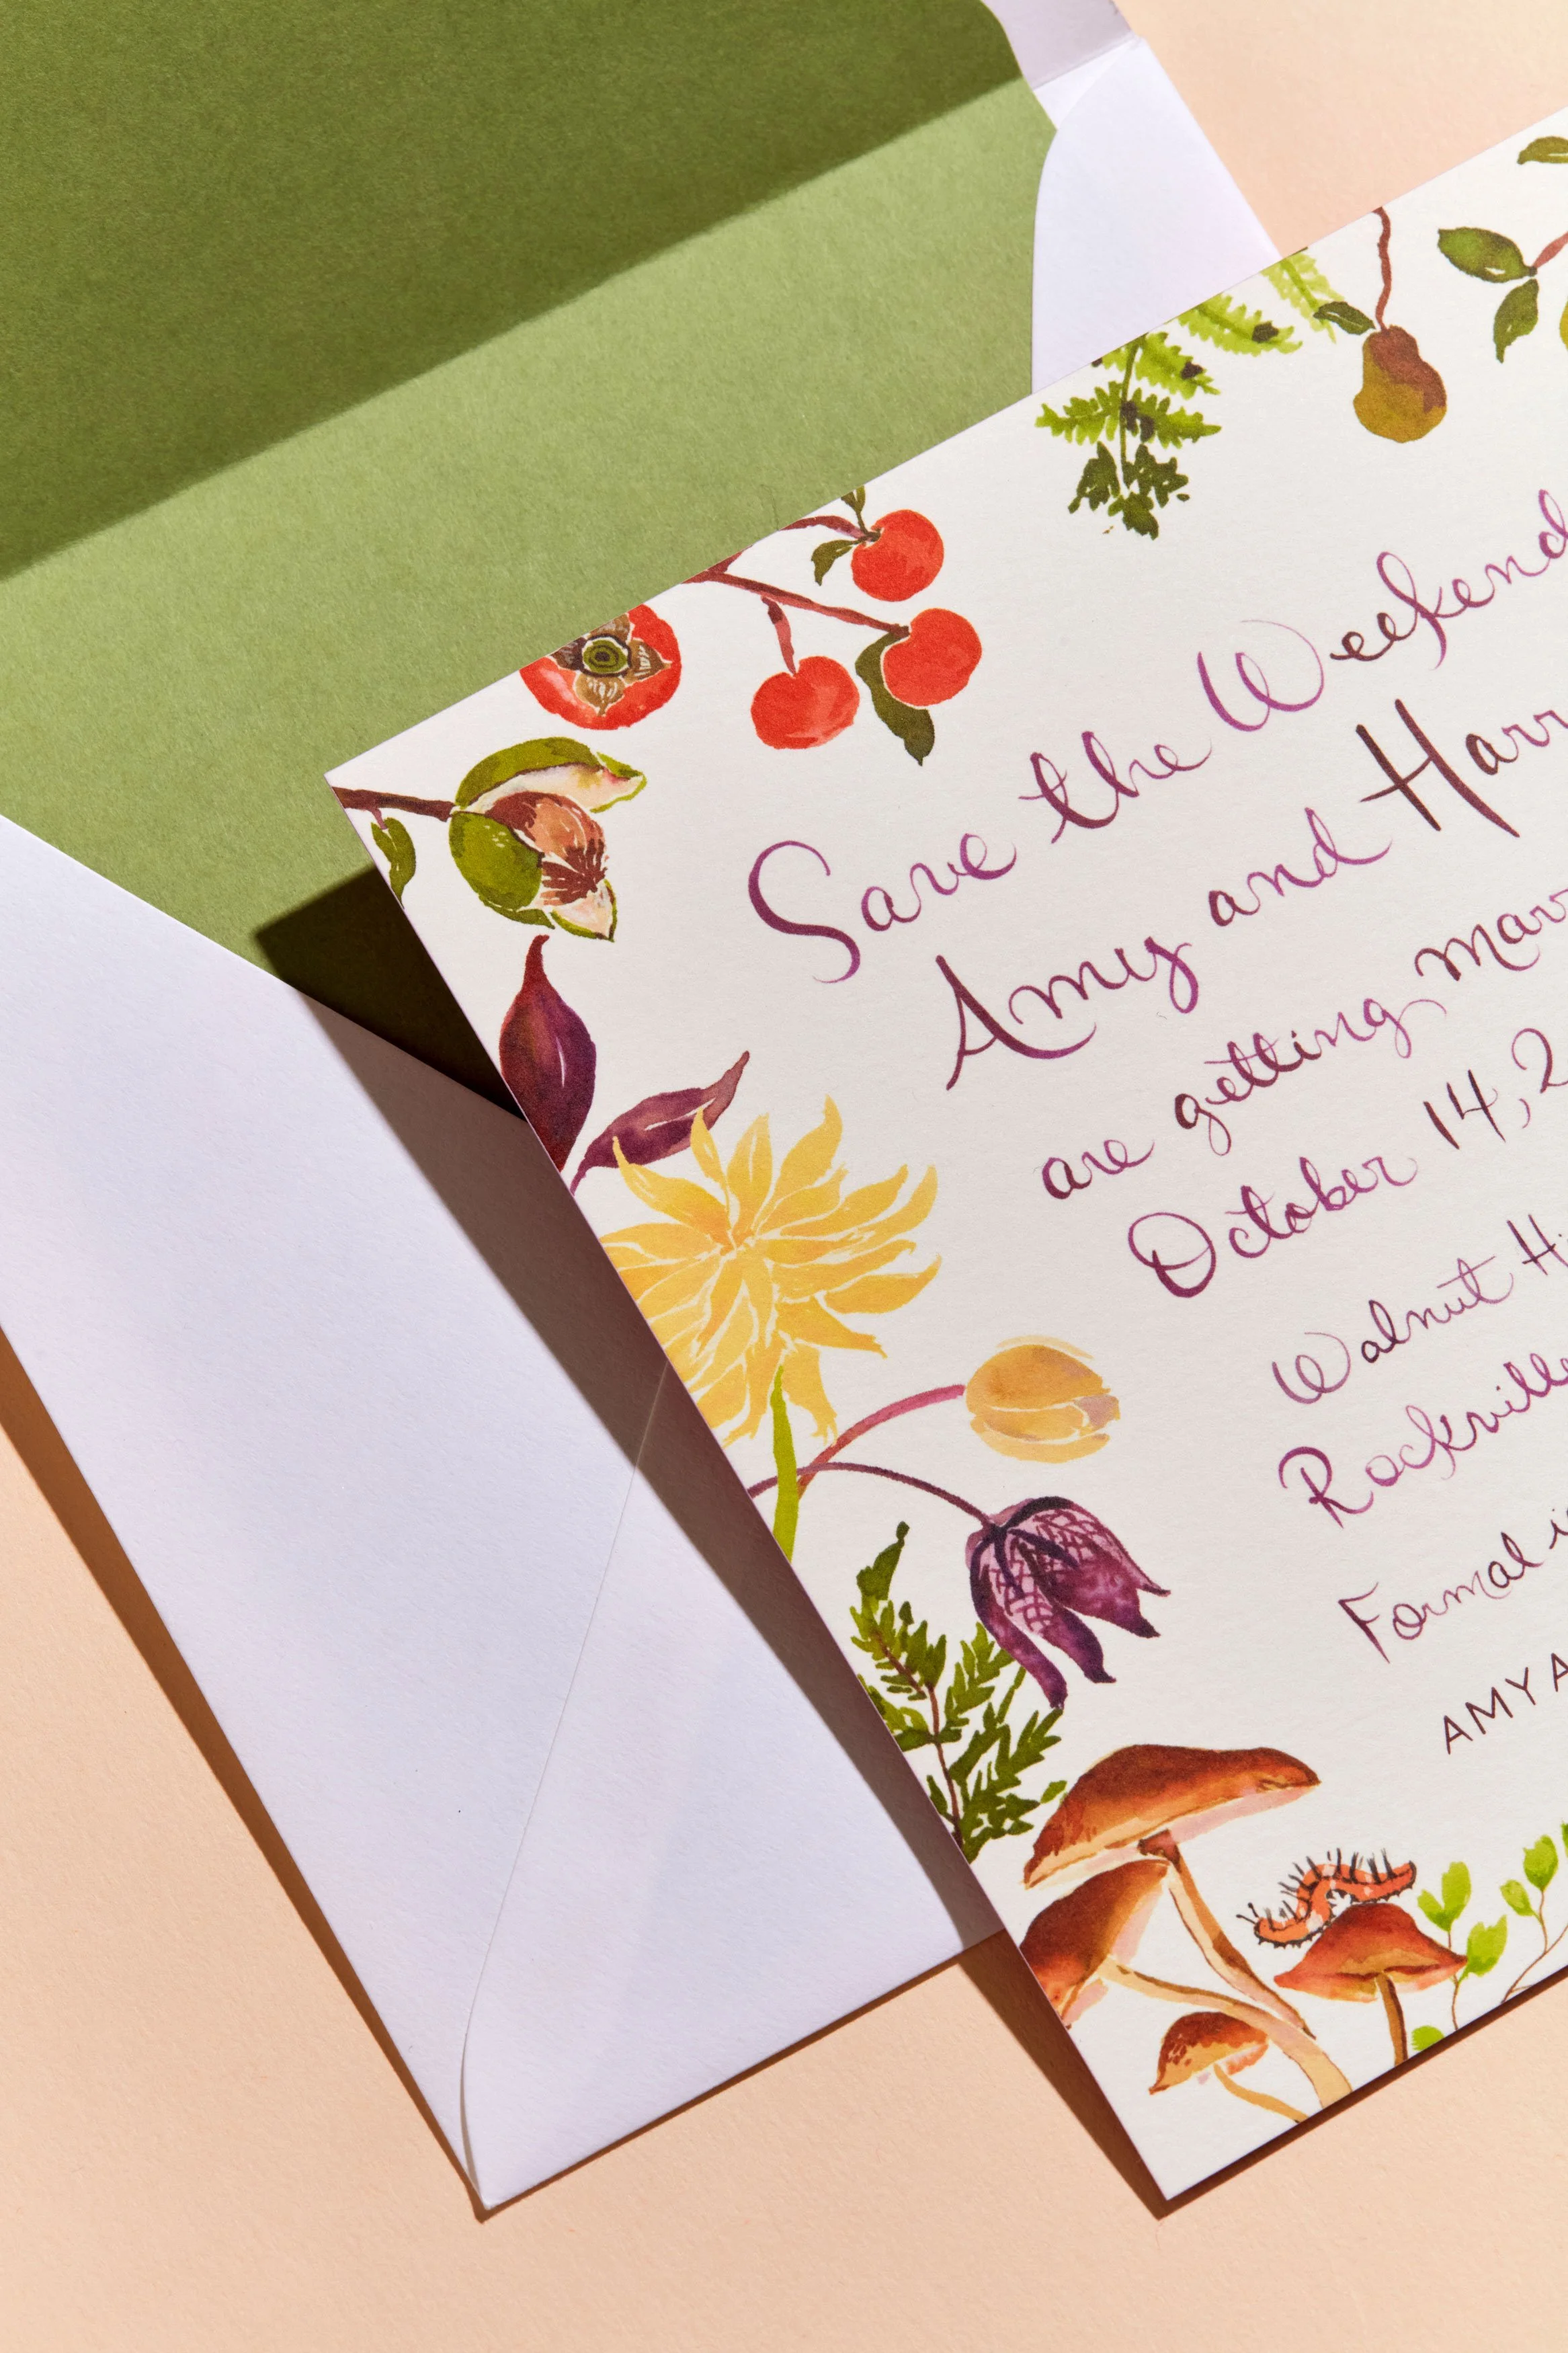 Save the Weekend
Amy and Harr
are getting marr
October 14, 2
Walnut H
Rockville
Formal i
AMY A